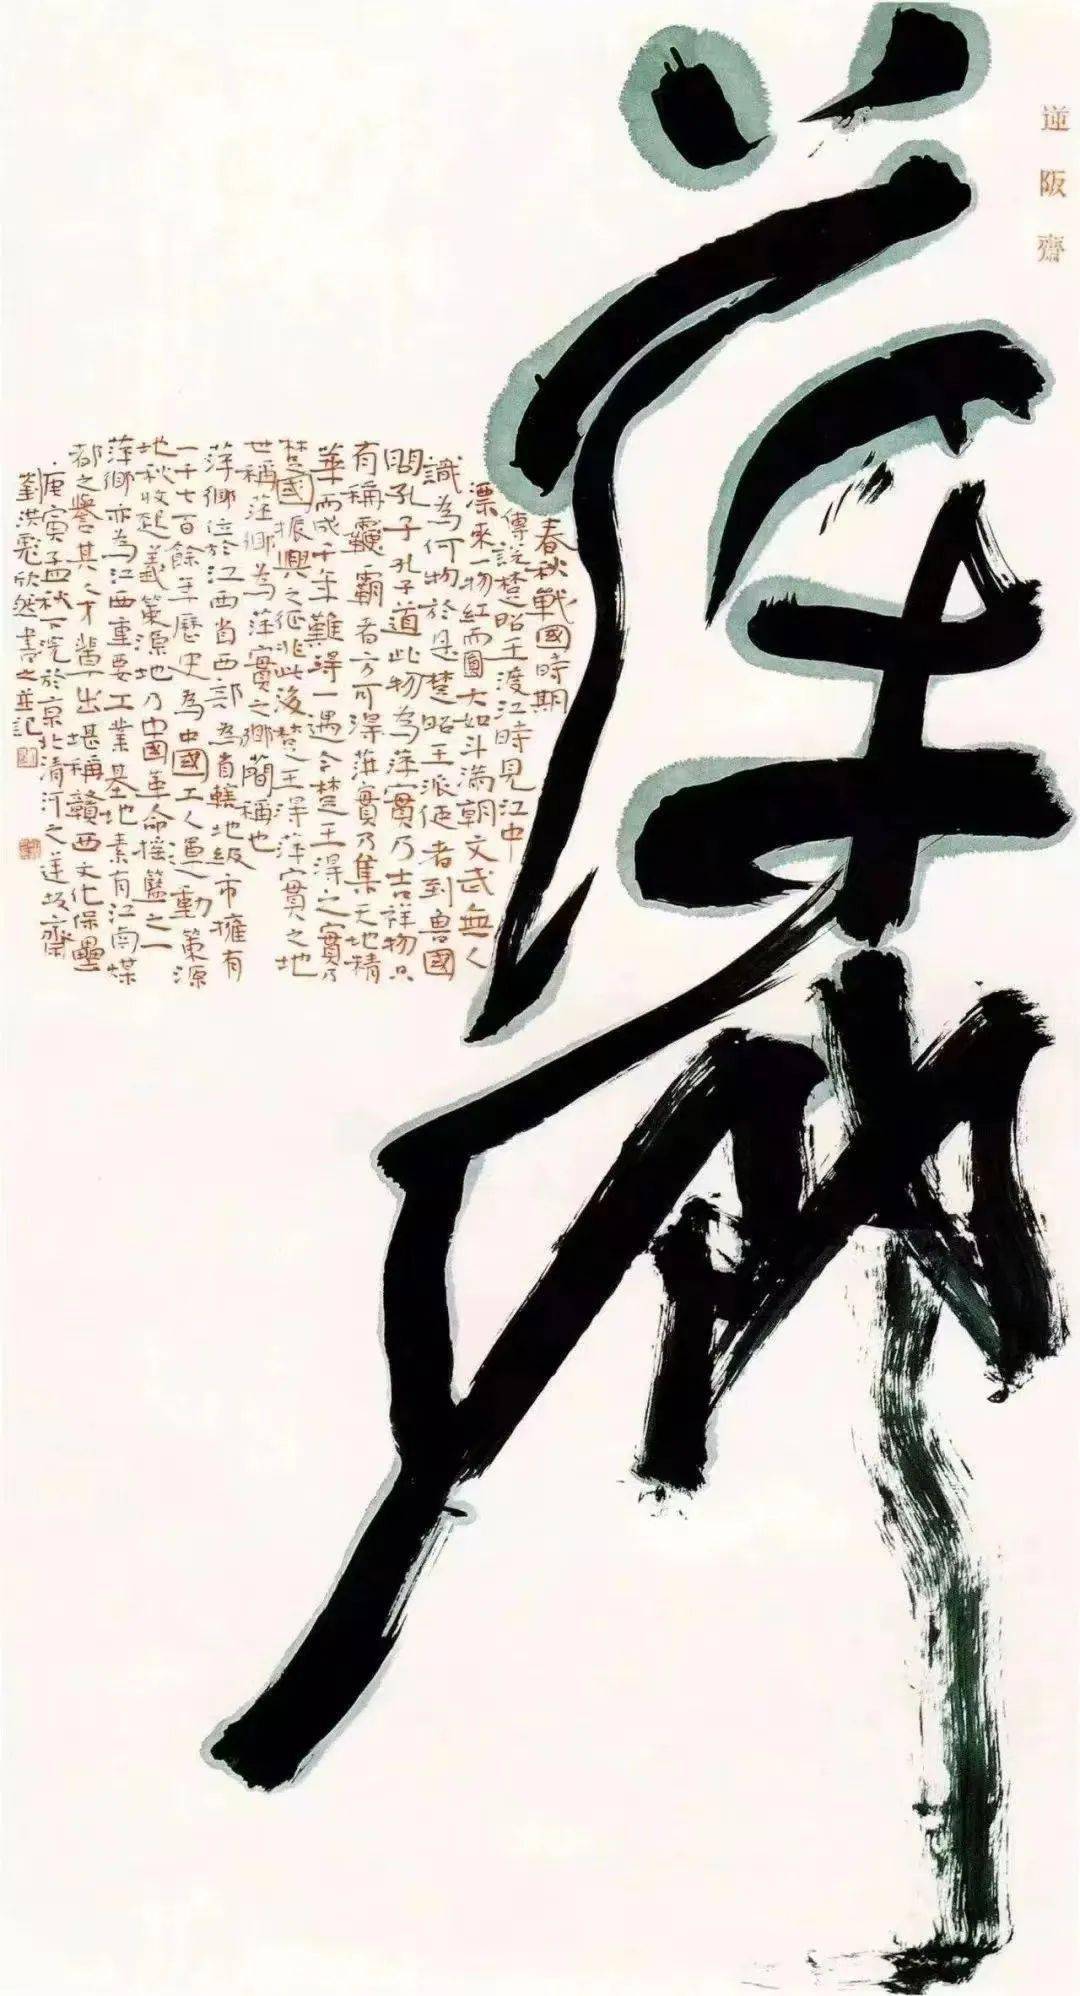 逆阪齋
春秋戰國時期
傳說楚昭王渡江時見江中
漂來一物紅而圓大如斗滿朝文武無人
識為何物於是楚昭王派使者到魯國
問孔子孔子道此物為萍實乃吉祥物只
有稱霸者方可得萍實乃集天地精
華而成千年難得一遇今楚王得之實乃
楚國振興之征兆此後楚王得萍實之地
世稱萍鄉為萍實之鄉簡稱也
萍鄉位於江西省西部為省轄地級市擁有
一千七百餘年歷史為中國工人運動策源
地秋收起義策源地乃中國革命搖籃之一
萍鄉亦為江西重要工業基地素有江南煤
都之譽其人才輩出堪稱贛西文化保壘
庚寅孟秋下浣於京北清河之逆阪齋
劉洪彪欣然書之並記